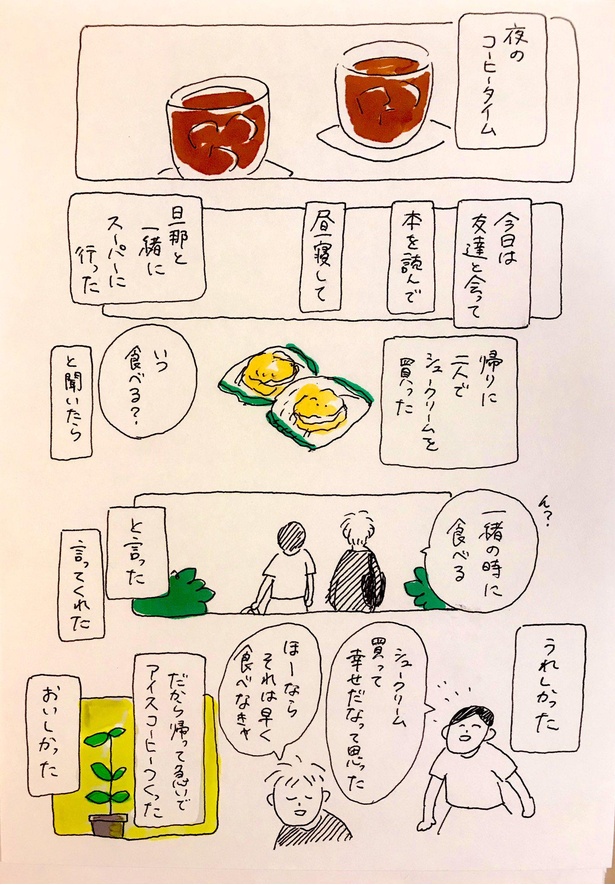 夜の
コーヒータイム
今日は
友達と会って
本を読んで
昼寝して
旦那と
一緒に
スーパーに
行った
帰りに
二人で
シュークリームを
買った
いつ
食べる?
と聞いたら
ん?
一緒の時に
食べる
と言った
言ってくれた
うれしかった
シュークリーム
買って
幸せだなって思った
ほーなら
それは早く
食べなきゃ
だから帰って急いで
アイスコーヒーつくった
おいしかった